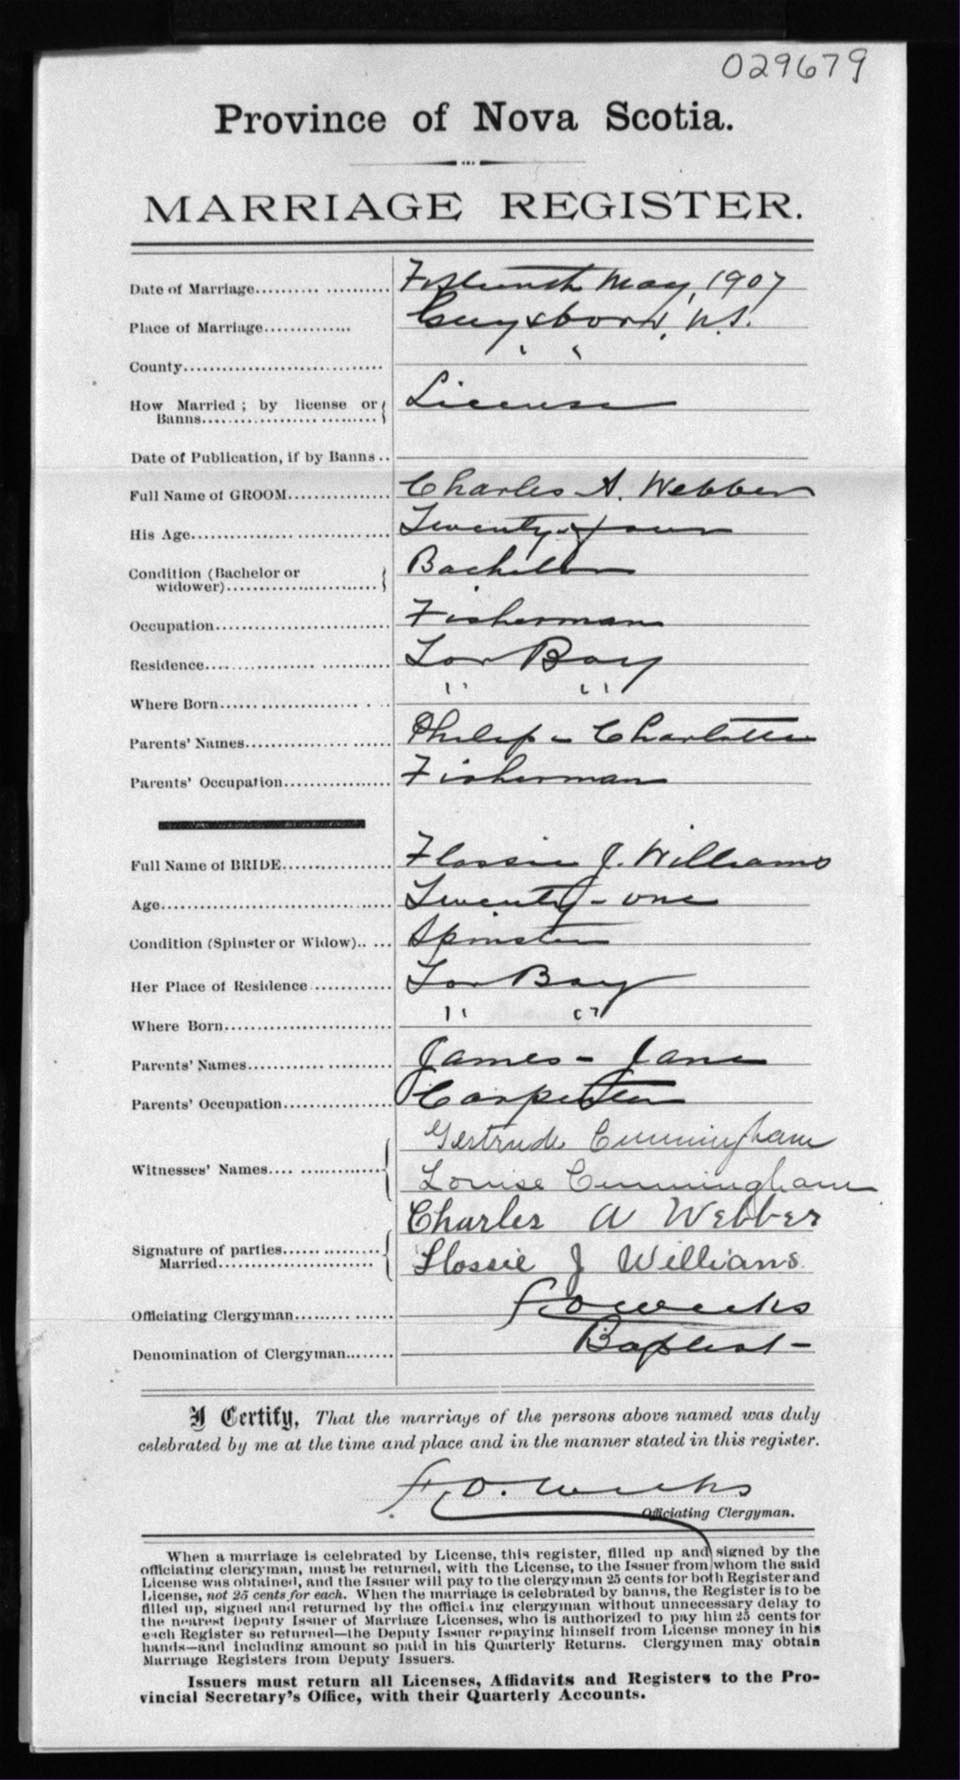 029679
Province of Nova Scotia.
MARRIAGE REGISTER.
Date of Marriage.......... .......... Fifteenth May, 1907
Place of Marriage.............. Guysboro, N.S.
County.............................. " "
How Married ; by license or Banns.................... License
Date of Publication, if by Banns ..
Full Name of GROOM................ Charles A. Webber
His Age............................... Twenty-four
Condition (Bachelor or widower)....................... Bachelor
Occupation........................... Fisherman
Residence............................ Tor Bay
Where Born........................ " "
Parents' Names...................... Philip - Charlotte
Parents' Occupation................ Fisherman
Full Name of BRIDE................ Flossie J. Williams
Age................................... Twenty-one
Condition (Spinster or Widow)..... Spinster
Her Place of Residence ............ Tor Bay
Where Born.......................... " "
Parents' Names...................... James - Jane
Parents' Occupation................ Carpenter
Gertrude Cunningham
Witnesses' Names.... ............
Louise Cunningham
Charles A Webber
Signature of parties Married.......................
Flossie J Williams
Officiating Clergyman.............. F O Weeks
Denomination of Clergyman........ Baptist -
I Certify, That the marriage of the persons above named was duly
celebrated by me at the time and place and in the manner stated in this register.
F. O. Weeks
Officiating Clergyman.
When a marriage is celebrated by License, this register, filled up and signed by the
officiating clergyman, must be returned, with the License, to the Issuer from whom the said
License was obtained, and the Issuer will pay to the clergyman 25 cents for both Register and
License, not 25 cents for each. When the marriage is celebrated by banns, the Register is to be
filled up, signed and returned by the officiating clergyman without unnecessary delay to
the nearest Deputy Issuer of Marriage Licenses, who is authorized to pay him 25 cents for
each Register so returned—the Deputy Issuer repaying himself from License money in his
hands—and including amount so paid in his Quarterly Returns. Clergymen may obtain
Marriage Registers from Deputy Issuers.
Issuers must return all Licenses, Affidavits and Registers to the Pro-
vincial Secretary's Office, with their Quarterly Accounts.